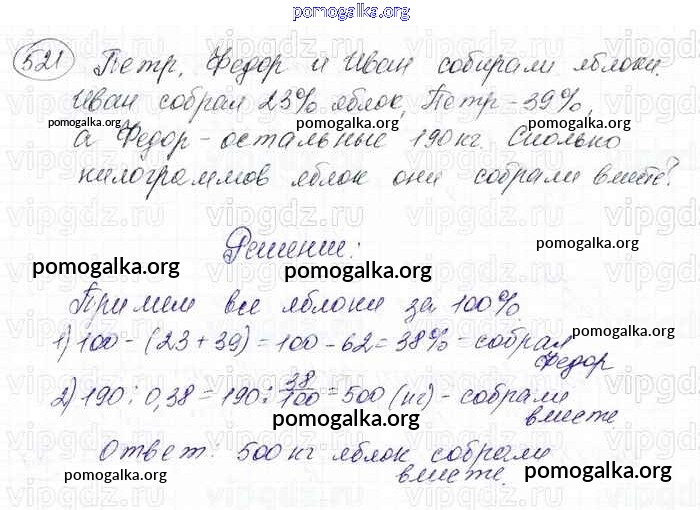 pomogalka.org
521 Петр, Федор и Иван собирали яблоки.
Иван собрал 23% яблок, Петр - 39%,
pomogalka.org pomogalka.org pomogalka.org
а Федор - остальные 190 кг. Сколько
килограммов яблок они собрали вместе?
Решение:
pomogalka.org
pomogalka.org pomogalka.org
Примем все яблоки за 100%.
pomogalka.org
1) 100 - (23 + 39) = 100 - 62 = 38% - собрал
Федор
2) 190 : 0,38 = 190 : 38/100 = 500 (кг) - собрали
вместе
pomogalka.org pomogalka.org
Ответ: 500 кг яблок собрали
вместе.
pomogalka.org pomogalka.org pomogalka.org